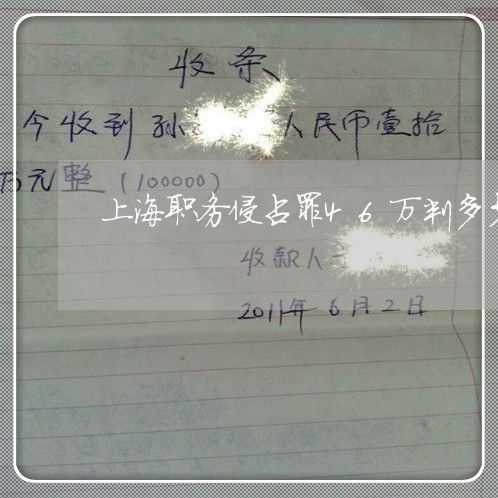 收条
今收到孙 人民币壹拾
万元整(100000)
上海职务侵占罪46万判多
收款人
2011年6月2日